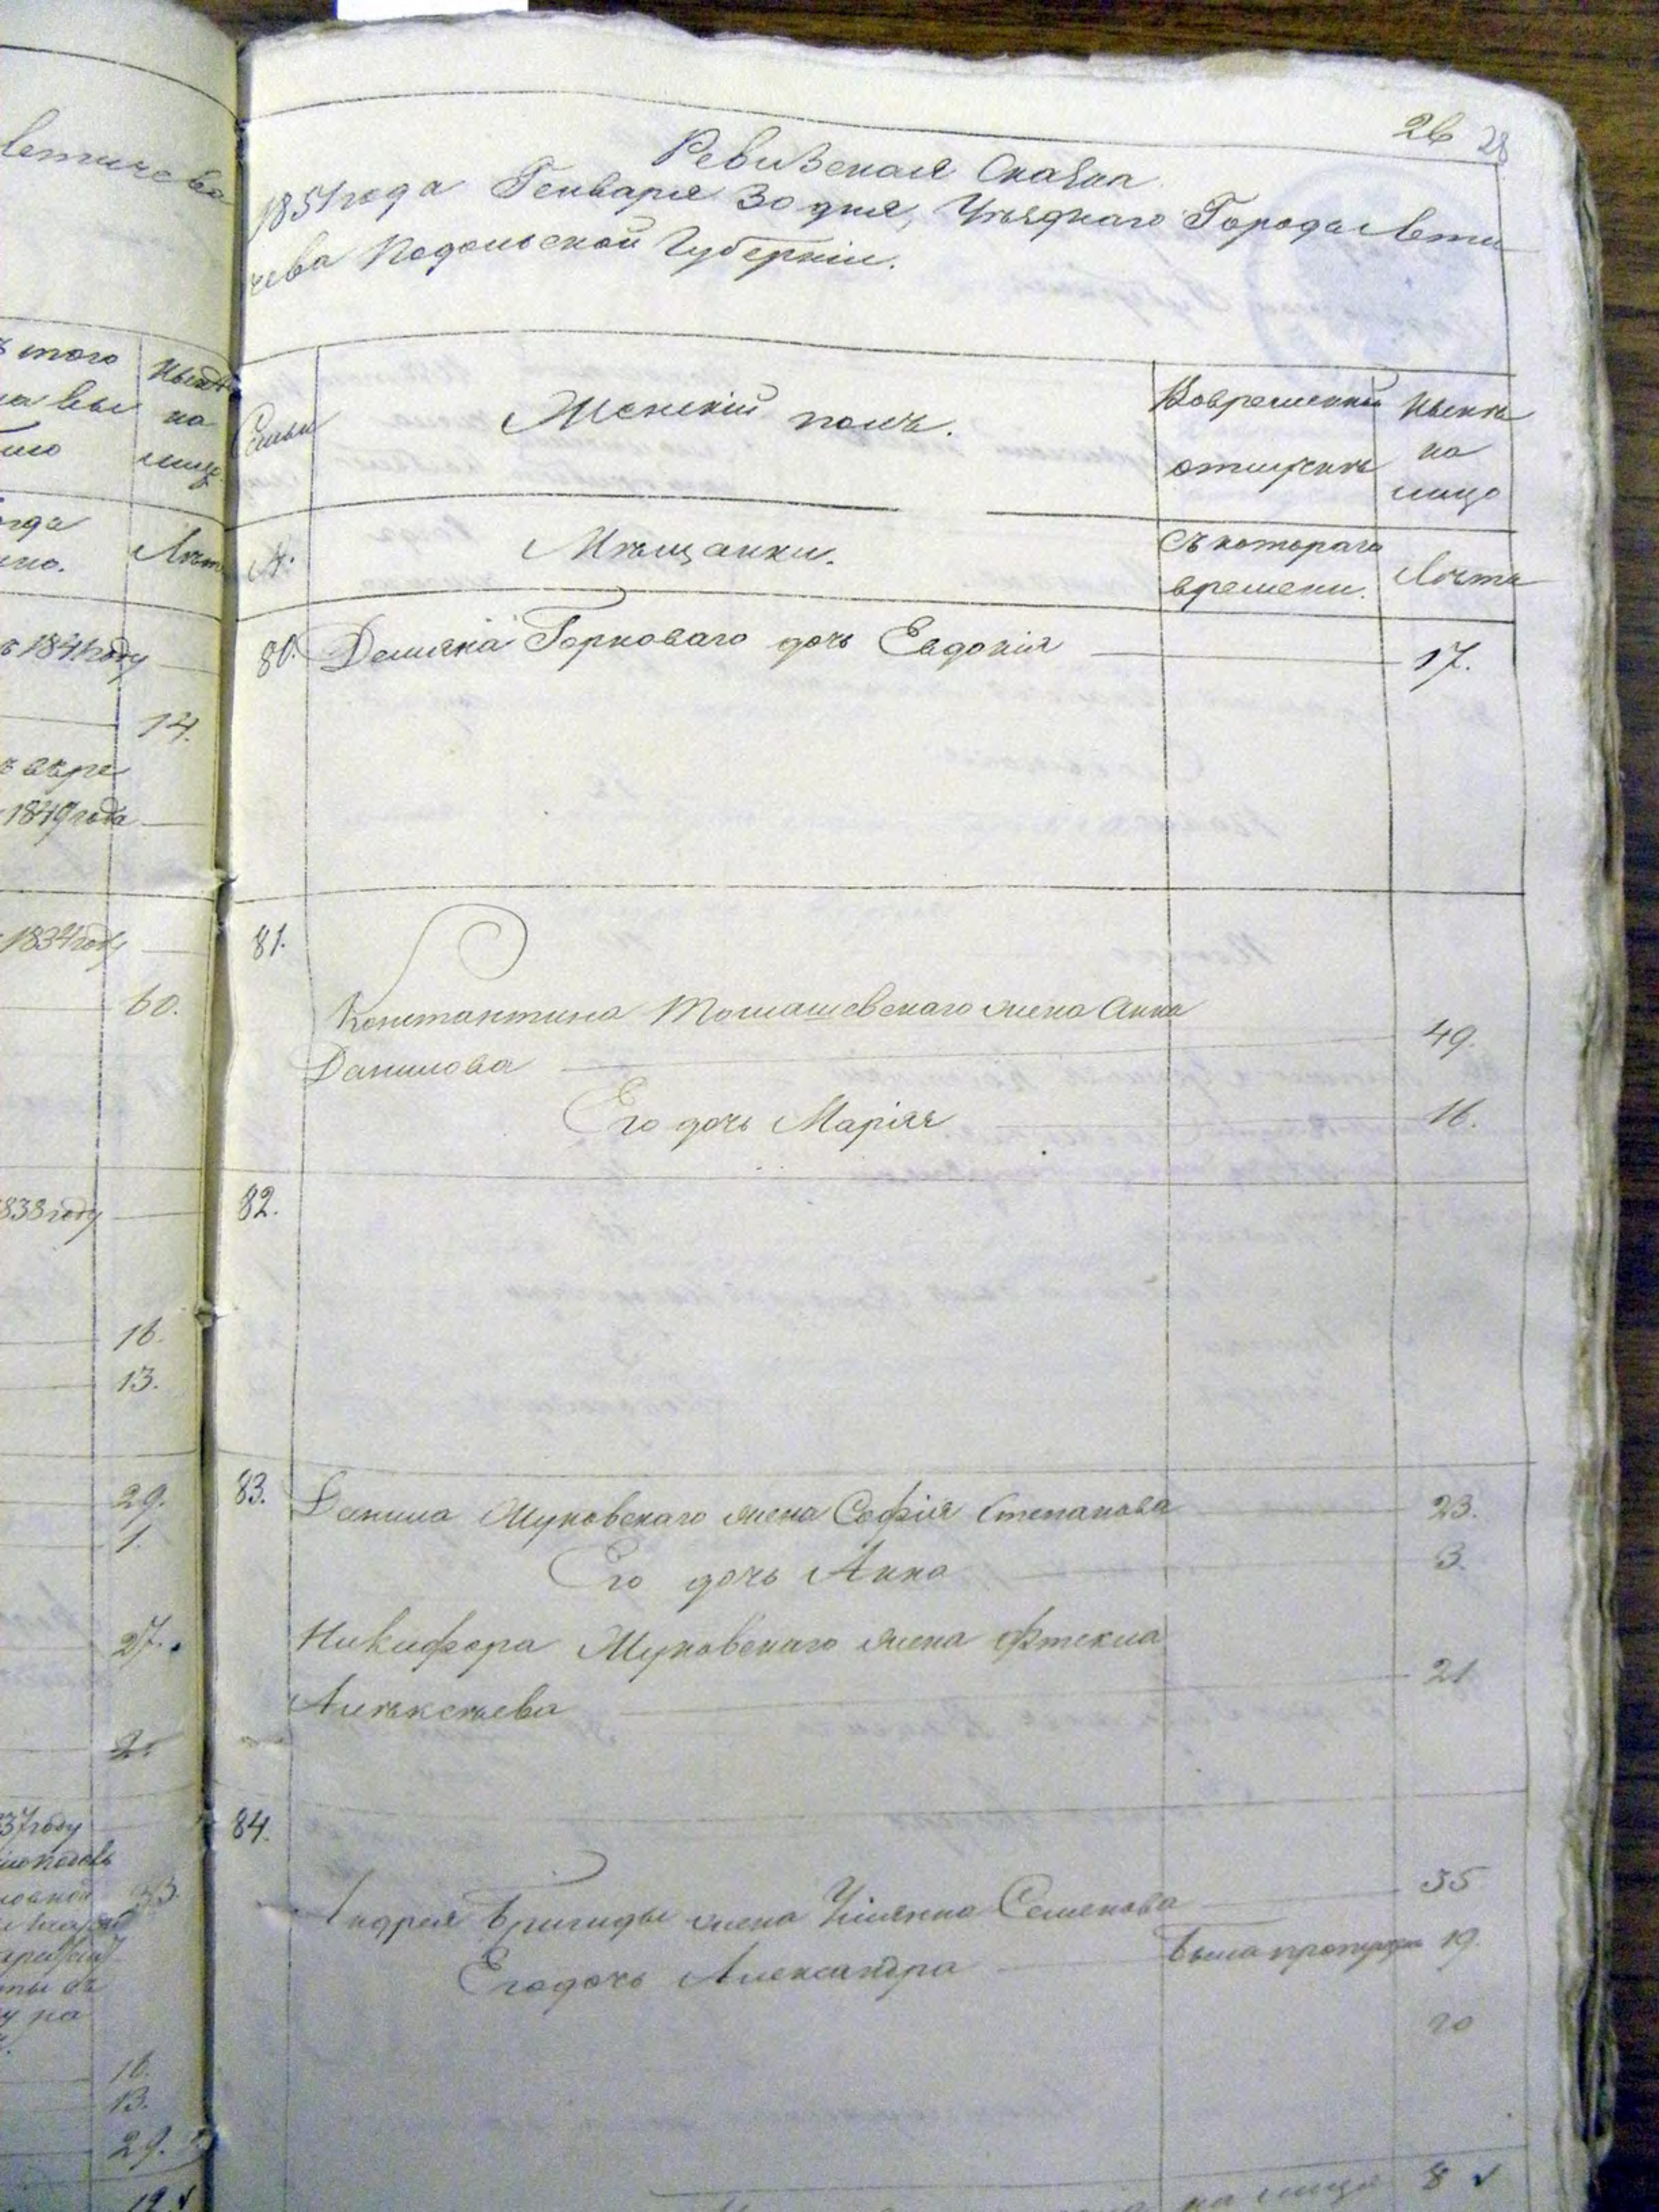 летичева
того
на вы
было
ныне
на
лицо
когда
имено.
Лета
въ 1841 году
14.
въ верже
1849 года
1834 году
60.
1838 году
16.
13.
29.
1.
27.
2.
1837 году
33.
16.
13.
29.
12
26 28
Ревизская Сказка
1851 года Генваря 30 дня, Уѣзднаго Города Лети
чева Подольской Губерніи.
Семьи
Женскій полъ.
Во временной
отлучкѣ
Нынѣ
на
лицо
№.
Мѣщанки.
Съ котораго
времени.
Лѣта
80. Демяна Горковаго дочь Евдокія 17.
81.
Константина Томашевскаго жена Анна
Данилова 49.
Его дочь Марія 16.
82.
83. Данила Жуковскаго жена Софія Степанова 23.
Его дочь Анна 3.
Никифора Жуковскаго жена Фтекла
Алѣксѣева 21
84.
Андрея Бригиды жена Ульяна Семенова 35
Его дочь Александра Была пропущена 19.
20
на лицо 8